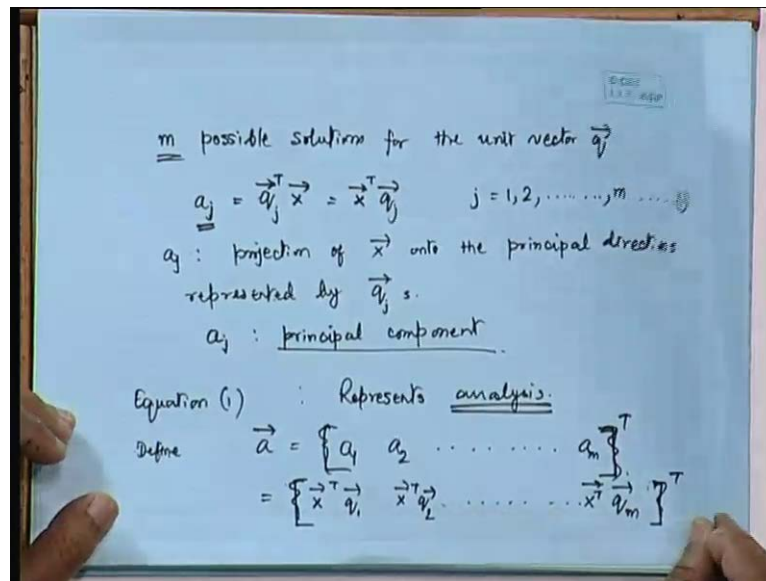 m possible solutions for the unit vector q⃗
a_j = q⃗_j^T x⃗ = x⃗^T q⃗_j j = 1, 2, ......, m .....
a_j : projection of x⃗ onto the principal directions
represented by q⃗_j s.
a_j : principal component
Equation (1) : Represents analysis.
Define a⃗ = [a_1 a_2 .......... a_m]^T
= [x⃗^T q⃗_1 x⃗^T q⃗_2 .......... x⃗^T q⃗_m]^T